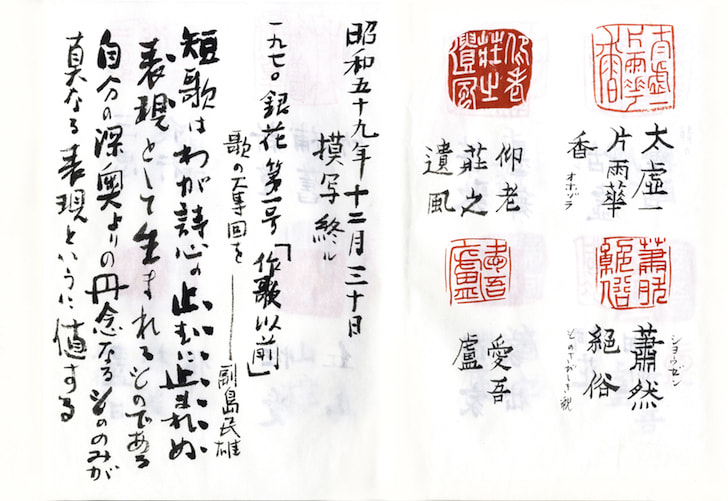 太虚一
片雨華
香
オホゾラ
仰老
荘之
遺風
蕭然
ショウゼン
絶俗
愛吾
盧
昭和五十九年十二月三十日
摸写終ル
一九七〇銀花第一号「作歌以前」
歌の 副島民雄
短歌はわが詩心の止むに止まれぬ
表現として生まれるものである
自分の深奥よりの丹念なるもののみが
真なる表現というに値する